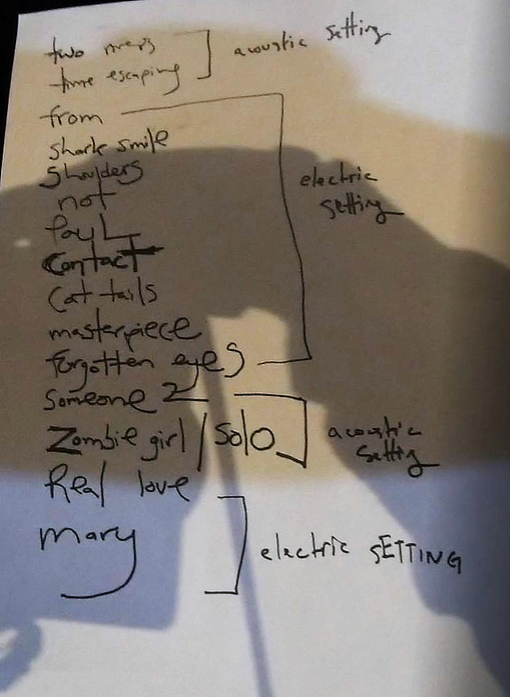 two rivers
acoustic setting
time escaping
from
shark smile
Shoulders
electric
setting
not
Paul
Contact
Cat tails
masterpiece
forgotten eyes
Someone 2
Zombie girl / solo
acoustic
setting
Real love
mary
electric SETTING